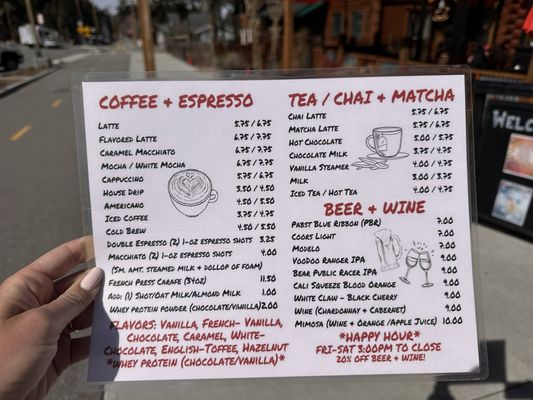 COFFEE & ESPRESSO
LATTE 5.75 / 6.75
FLAVORED LATTE 6.75 / 7.75
CARAMEL MACCHIATO 6.75 / 7.75
MOCHA / WHITE MOCHA 6.75 / 7.75
CAPPUCCINO 5.75 / 6.75
HOUSE DRIP 3.50 / 4.50
AMERICANO 4.50 / 5.50
ICED COFFEE 3.75 / 4.75
COLD BREW 4.50 / 5.50
DOUBLE ESPRESSO (2) 1-OZ ESPRESSO SHOTS 3.25
MACCHIATO (2) 1-OZ ESPRESSO SHOTS 4.00
(SM. AMT. STEAMED MILK + DOLLOP OF FOAM)
FRENCH PRESS CARAFE (34OZ) 11.50
ADD: (1) SHOT/OAT MILK/ALMOND MILK 1.00
WHEY PROTEIN POWDER (CHOCOLATE/VANILLA) 2.00
FLAVORS: VANILLA, FRENCH- VANILLA,
CHOCOLATE, CARAMEL, WHITE-
CHOCOLATE, ENGLISH-TOFFEE, HAZELNUT
*WHEY PROTEIN (CHOCOLATE/VANILLA)*
TEA / CHAI & MATCHA
CHAI LATTE 5.75 / 6.75
MATCHA LATTE 5.75 / 6.75
HOT CHOCOLATE 5.00 / 5.75
CHOCOLATE MILK 3.75 / 4.75
VANILLA STEAMER 4.00 / 4.75
MILK 3.00 / 3.75
ICED TEA / HOT TEA 4.00 / 4.75
BEER & WINE
PABST BLUE RIBBON (PBR) 7.00
COORS LIGHT 7.00
MODELO 7.00
VOODOO RANGER IPA 9.00
BEAR PUBLIC RACER IPA 9.00
CALI SQUEEZE BLOOD ORANGE 9.00
WHITE CLAW - BLACK CHERRY 9.00
WINE (CHARDONNAY + CABERNET) 9.00
MIMOSA (WINE + ORANGE /APPLE JUICE) 10.00
*HAPPY HOUR*
FRI-SAT 3:00PM TO CLOSE
20% OFF BEER & WINE!
WELCO